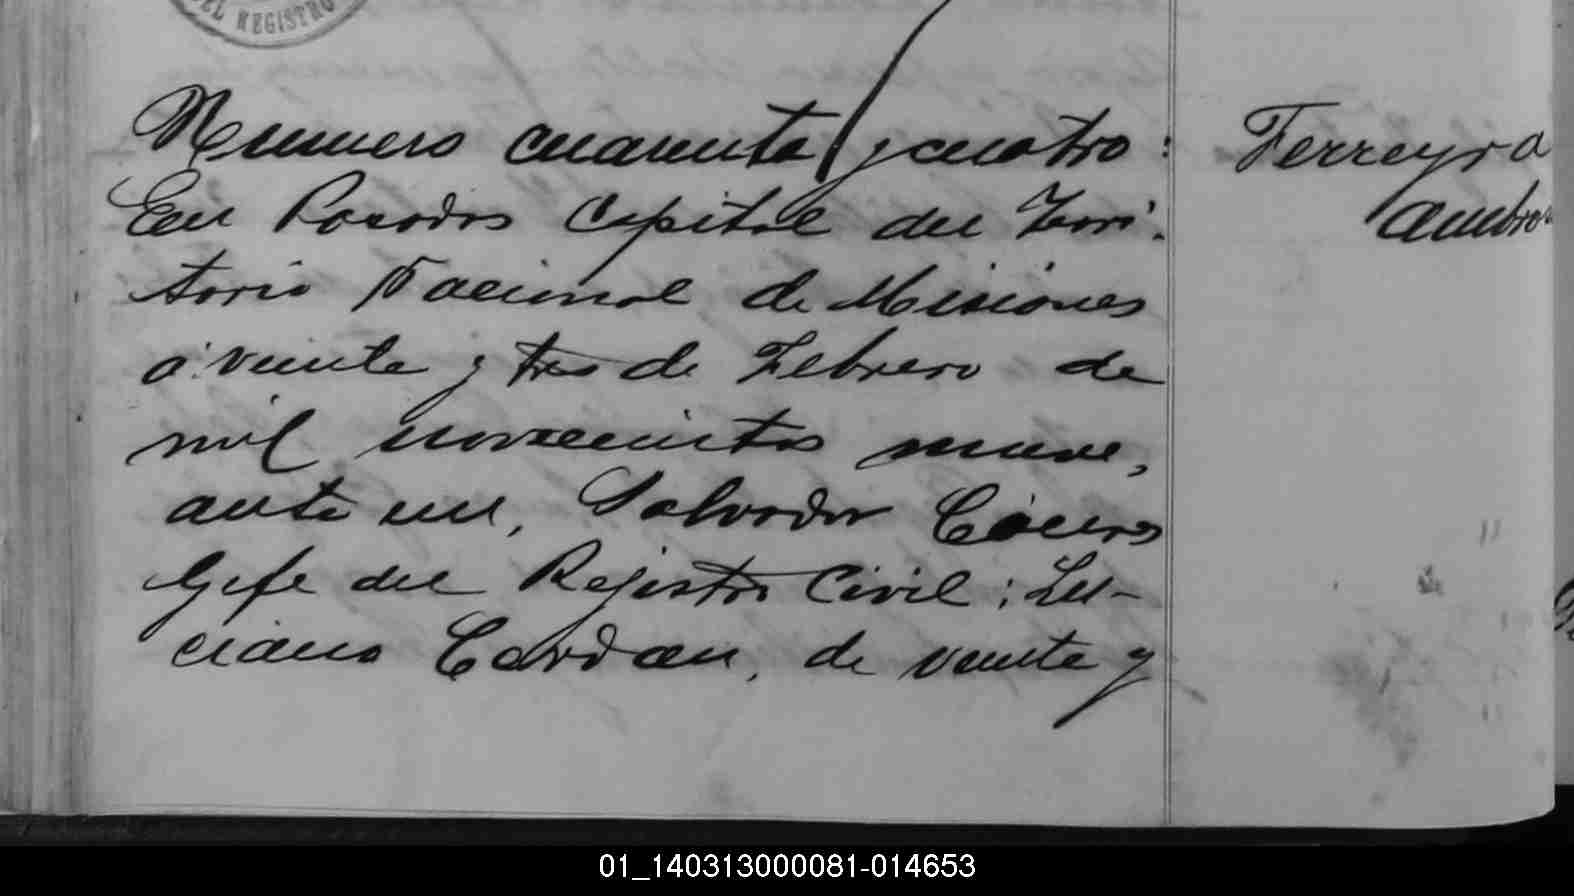 DEL REGISTRO
Numero cuarenta y cuatro:
En Posadas Capital del Terri-
torio Nacional de Misiones
á veinte y tres de Febrero de
mil novecientos nueve,
ante mi, Salvador
Gefe del Registro Civil; Lu-
ciano Cardan, de veinte y
Ferreyra
Ambro
01_140313000081-014653